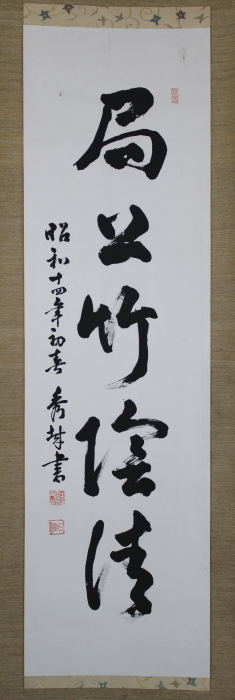 局上竹陰清
昭和十四年初春 秀峰書